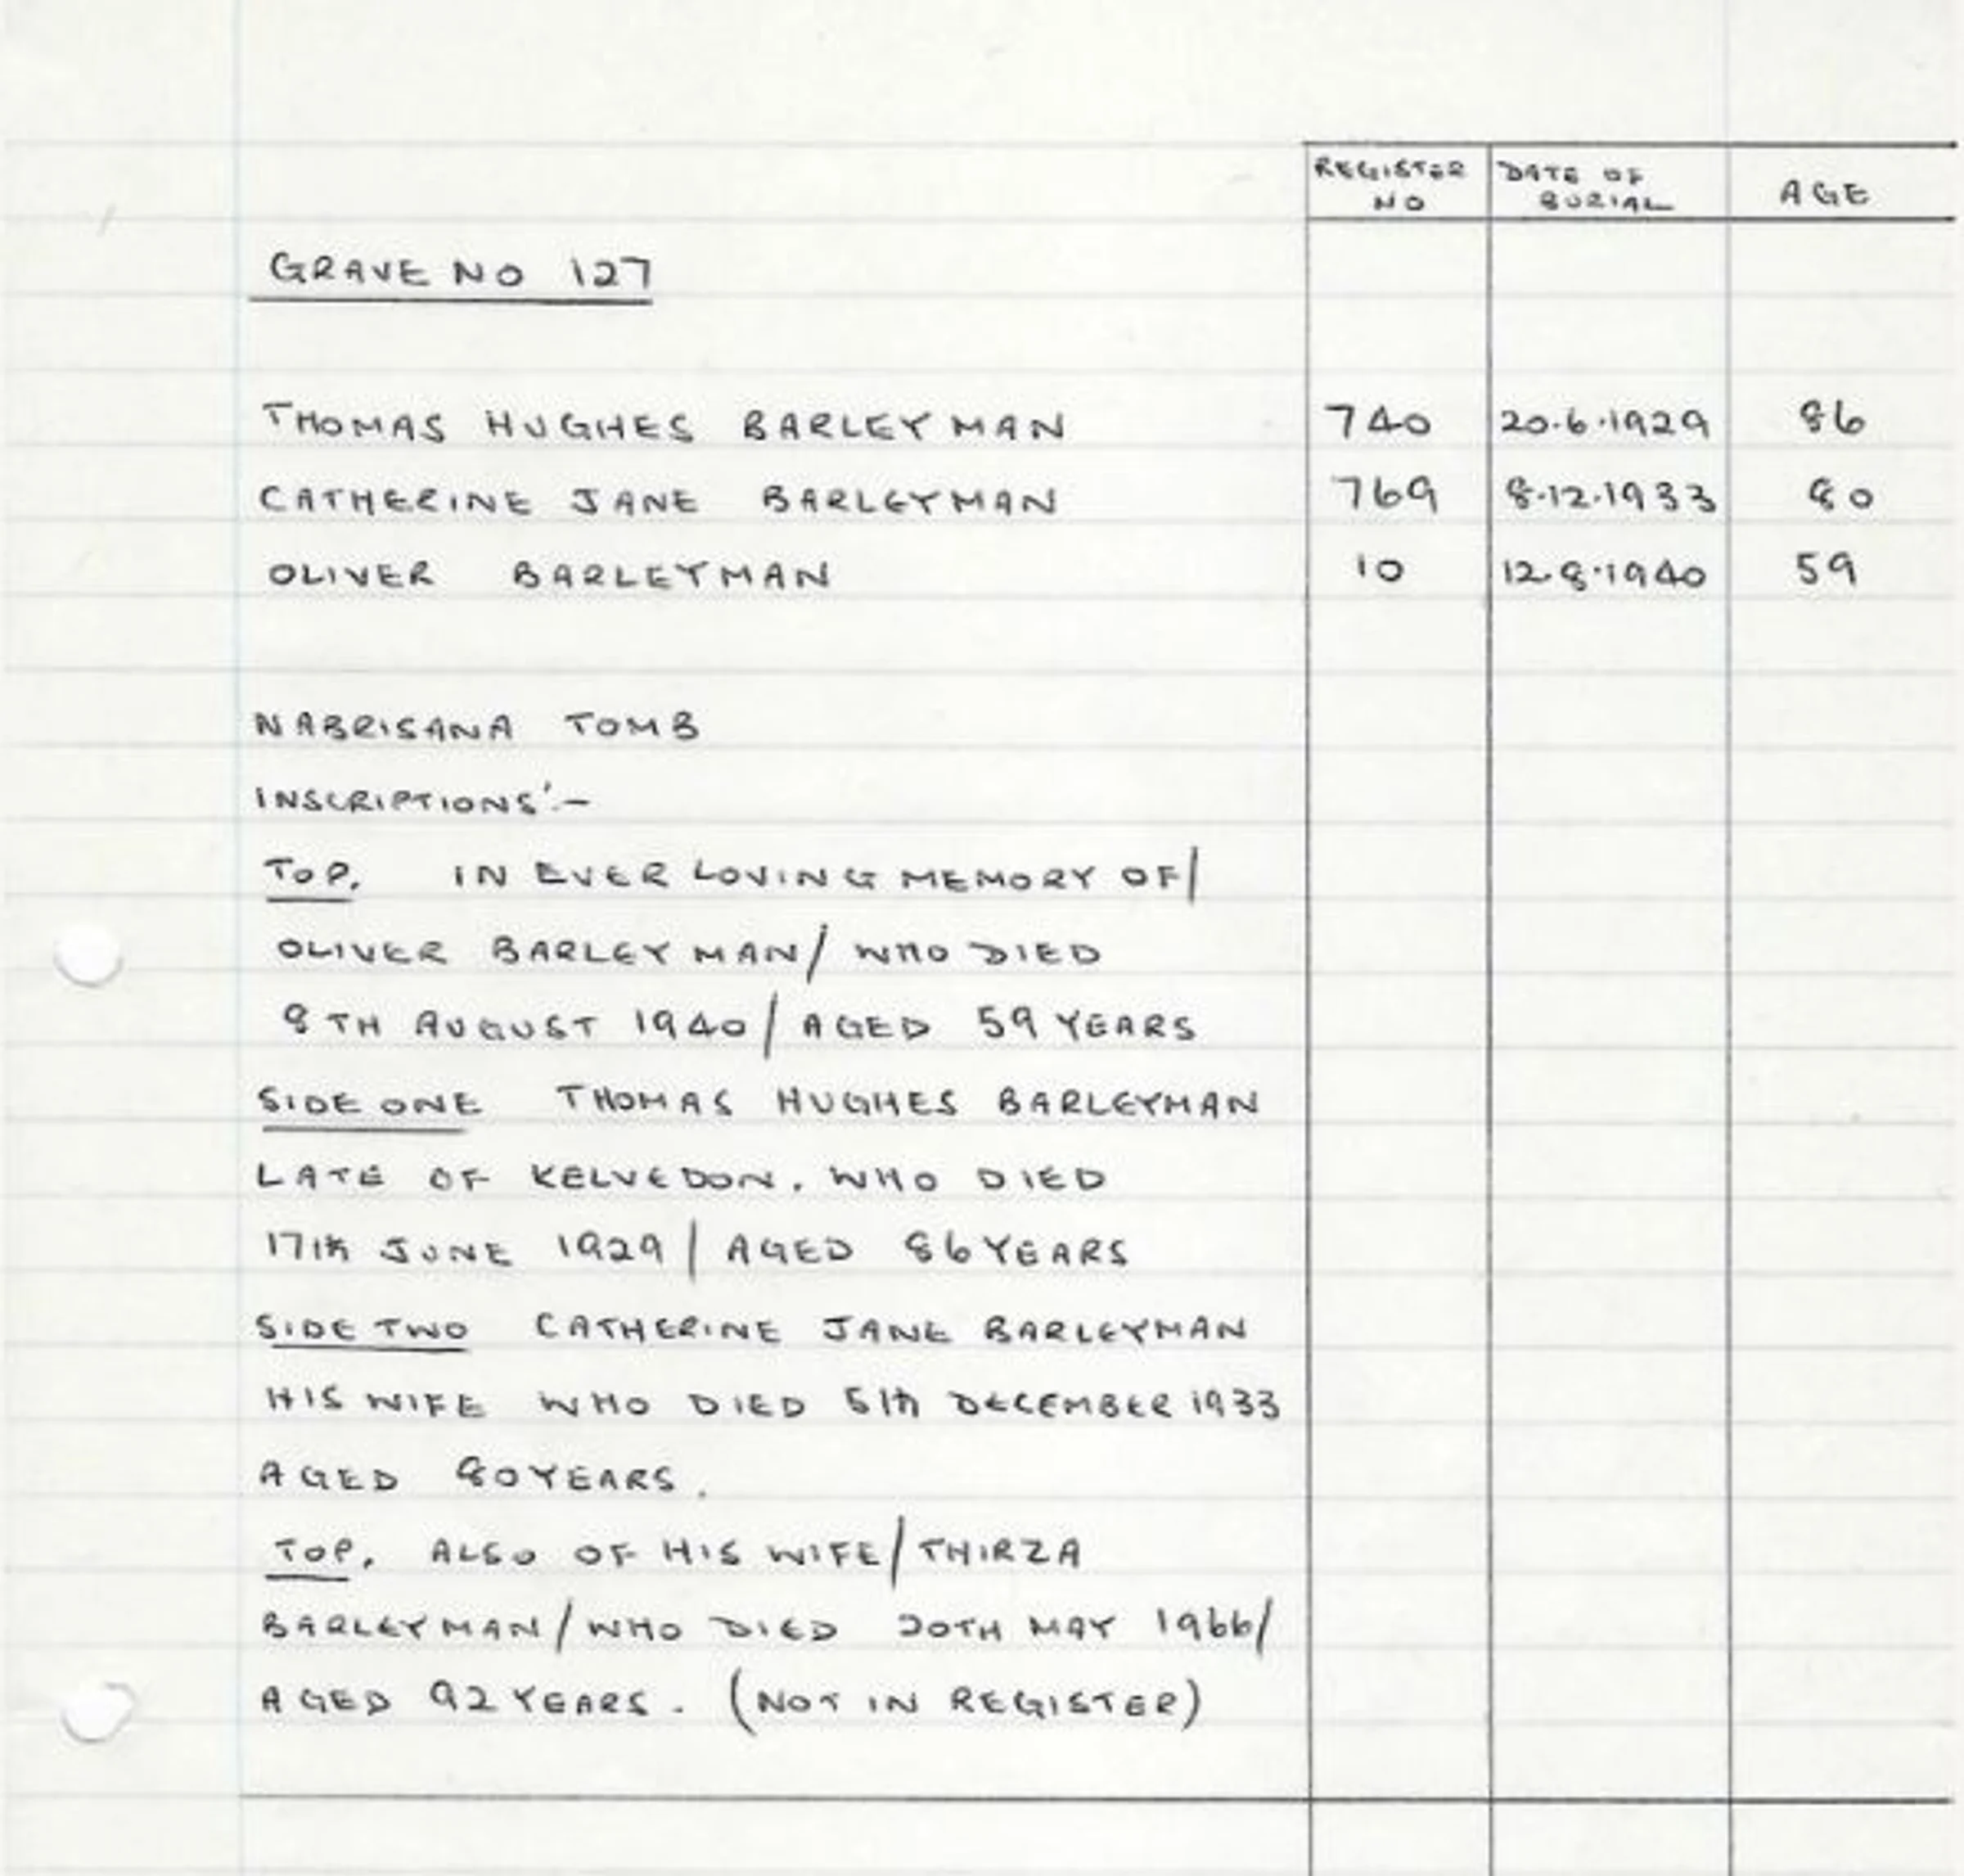 REGISTER NO DATE OF BURIAL AGE
GRAVE NO 127
THOMAS HUGHES BARLEYMAN 740 20.6.1929 86
CATHERINE JANE BARLEYMAN 769 8.12.1933 80
OLIVER BARLEYMAN 10 12.8.1940 59
NABRISANA TOMB
INSCRIPTIONS:-
TOP. IN EVER LOVING MEMORY OF/
OLIVER BARLEYMAN/ WHO DIED
8TH AUGUST 1940/ AGED 59 YEARS
SIDE ONE THOMAS HUGHES BARLEYMAN
LATE OF KELVEDON. WHO DIED
17th JUNE 1929/ AGED 86 YEARS
SIDE TWO CATHERINE JANE BARLEYMAN
HIS WIFE WHO DIED 5th DECEMBER 1933
AGED 80 YEARS.
TOP. ALSO OF HIS WIFE/ THIRZA
BARLEYMAN/ WHO DIED MAY 1966/
AGED 92 YEARS. (NOT IN REGISTER)